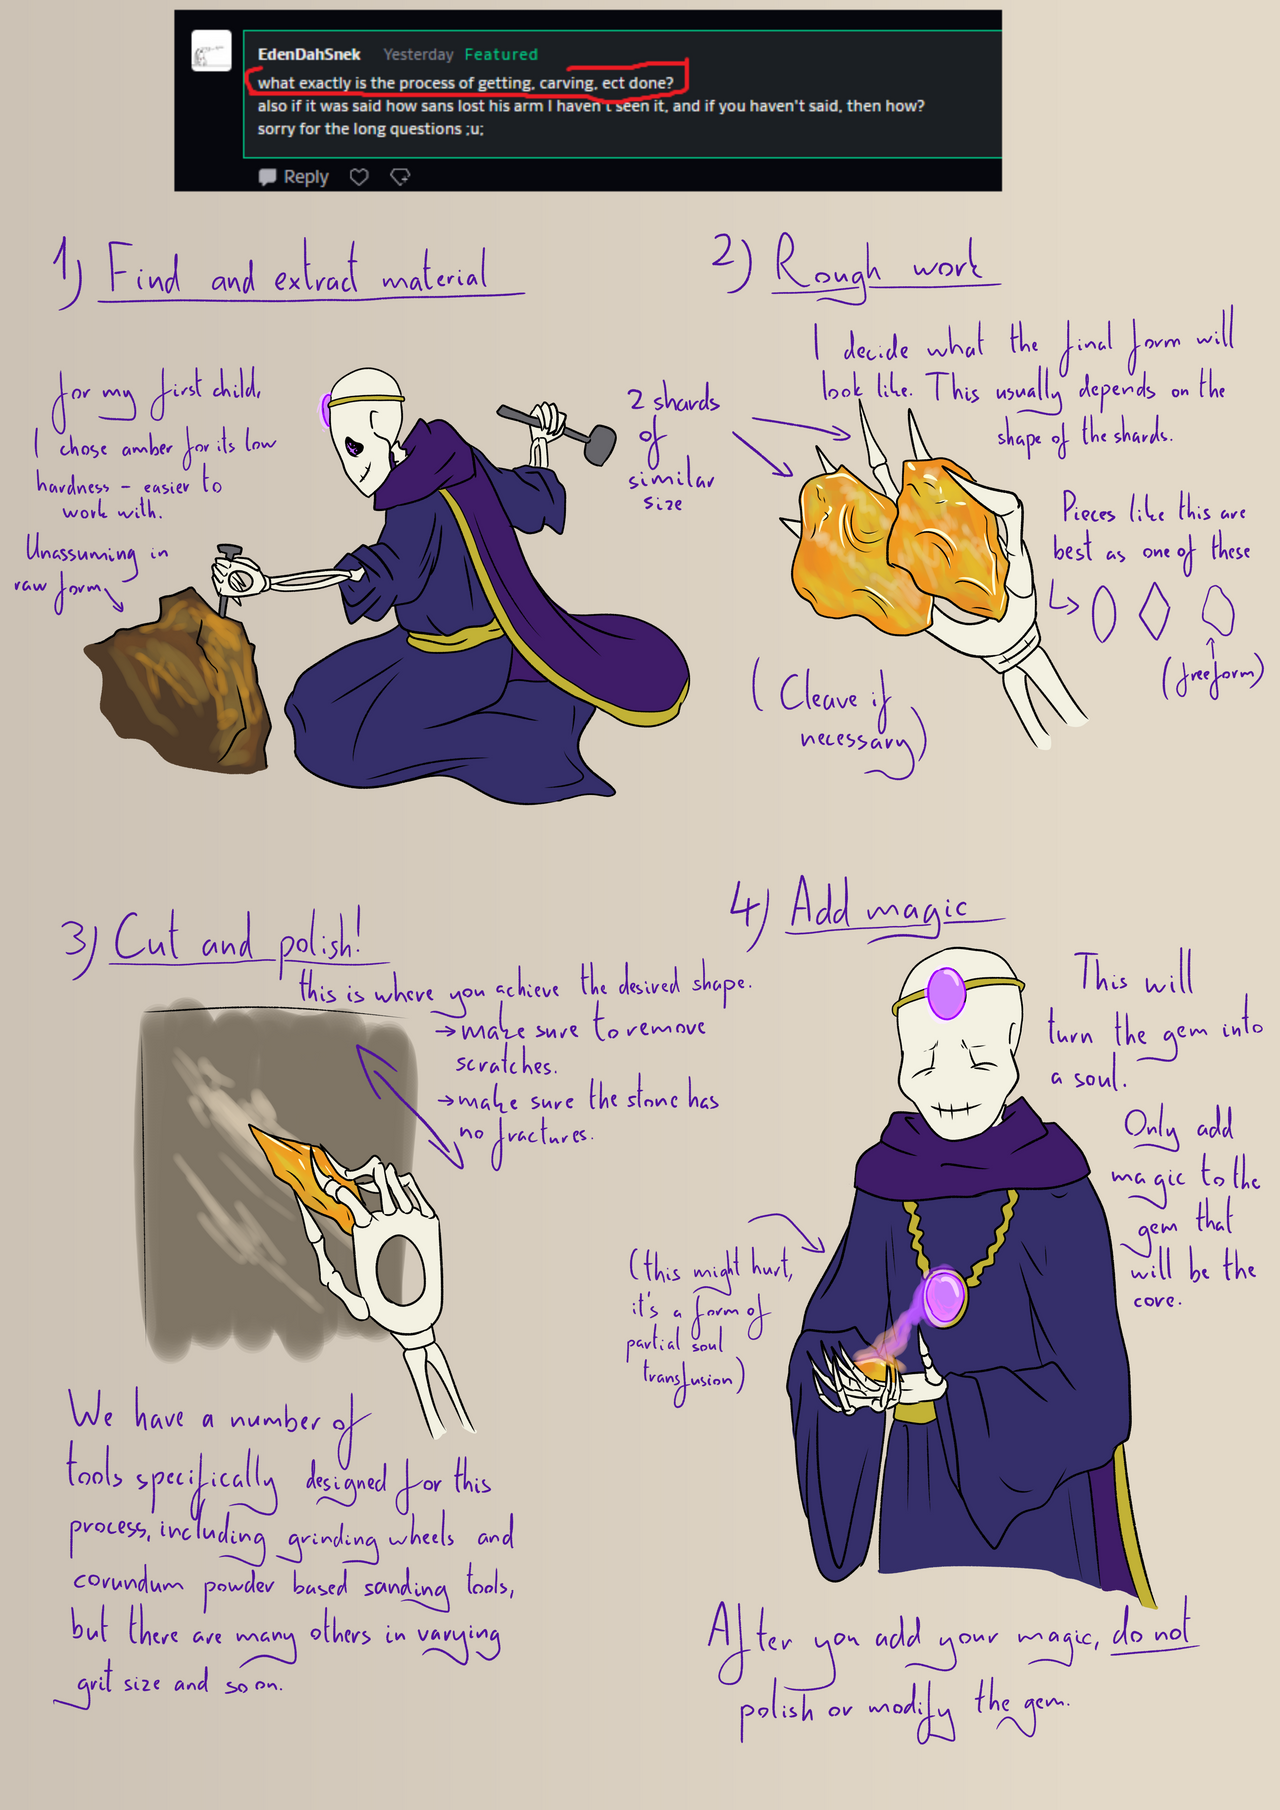 EdenDahSnek Yesterday Featured
what exactly is the process of getting, carving, ect done?
also if it was said how sans lost his arm I haven't seen it, and if you haven't said, then how?
sorry for the long questions ;u;
Reply
1) Find and extract material
for my first child,
I chose amber for its low
hardness - easier to
work with.
Unassuming in
raw form
2) Rough work
I decide what the final form will
look like. This usually depends on the
shape of the shards.
2 shards
of
similar
size
Pieces like this are
best as one of these
(freeform)
(Cleave if
necessary)
3) Cut and polish!
this is where you achieve the desired shape.
→ make sure to remove
scratches.
→ make sure the stone has
no fractures.
We have a number of
tools specifically designed for this
process, including grinding wheels and
corundum powder based sanding tools,
but there are many others in varying
grit size and so on.
4) Add magic
This will
turn the gem into
a soul.
Only add
magic to the
gem that
will be the
core.
(this might hurt,
it's a form of
partial soul
transfusion)
After you add your magic, do not
polish or modify the gem.